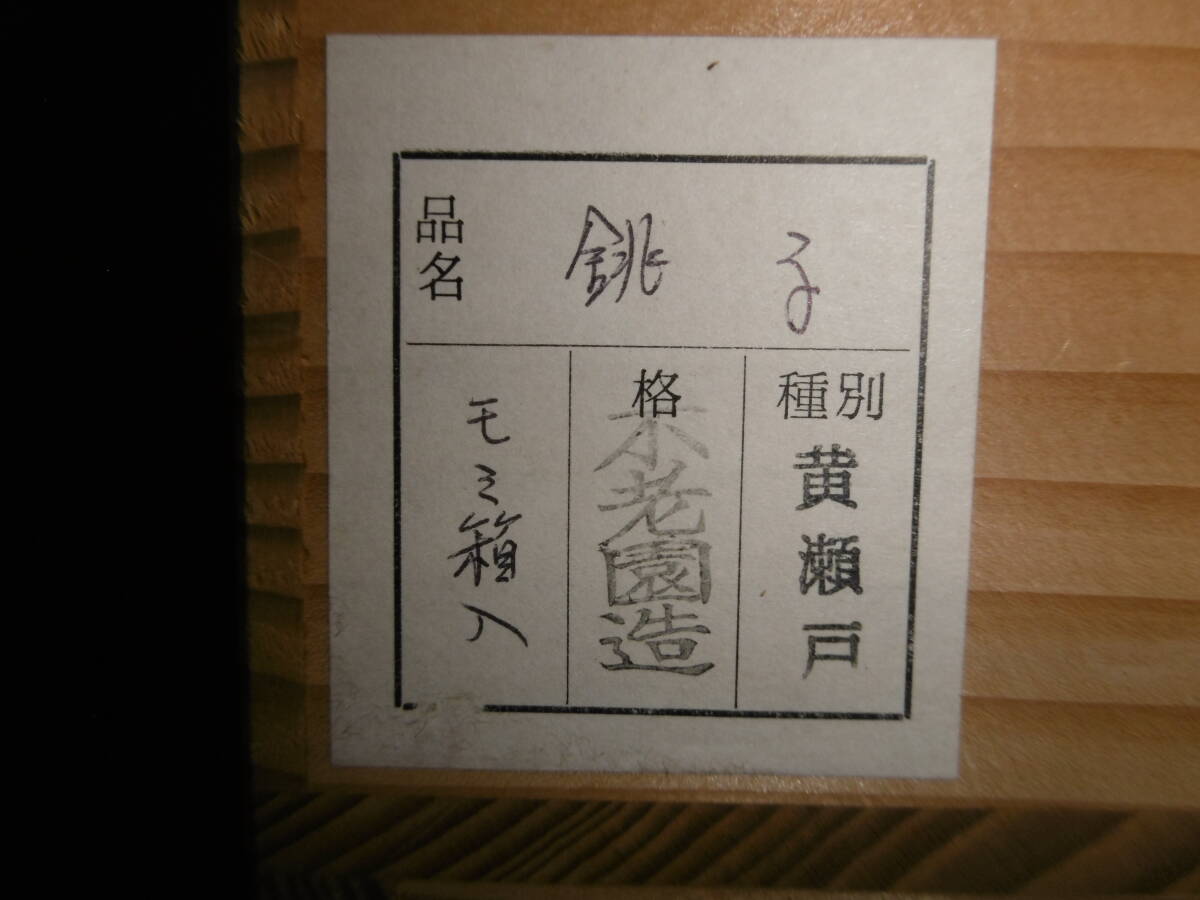 品名
銚子
種別
黄瀬戸
格
不老園造
モミ箱入